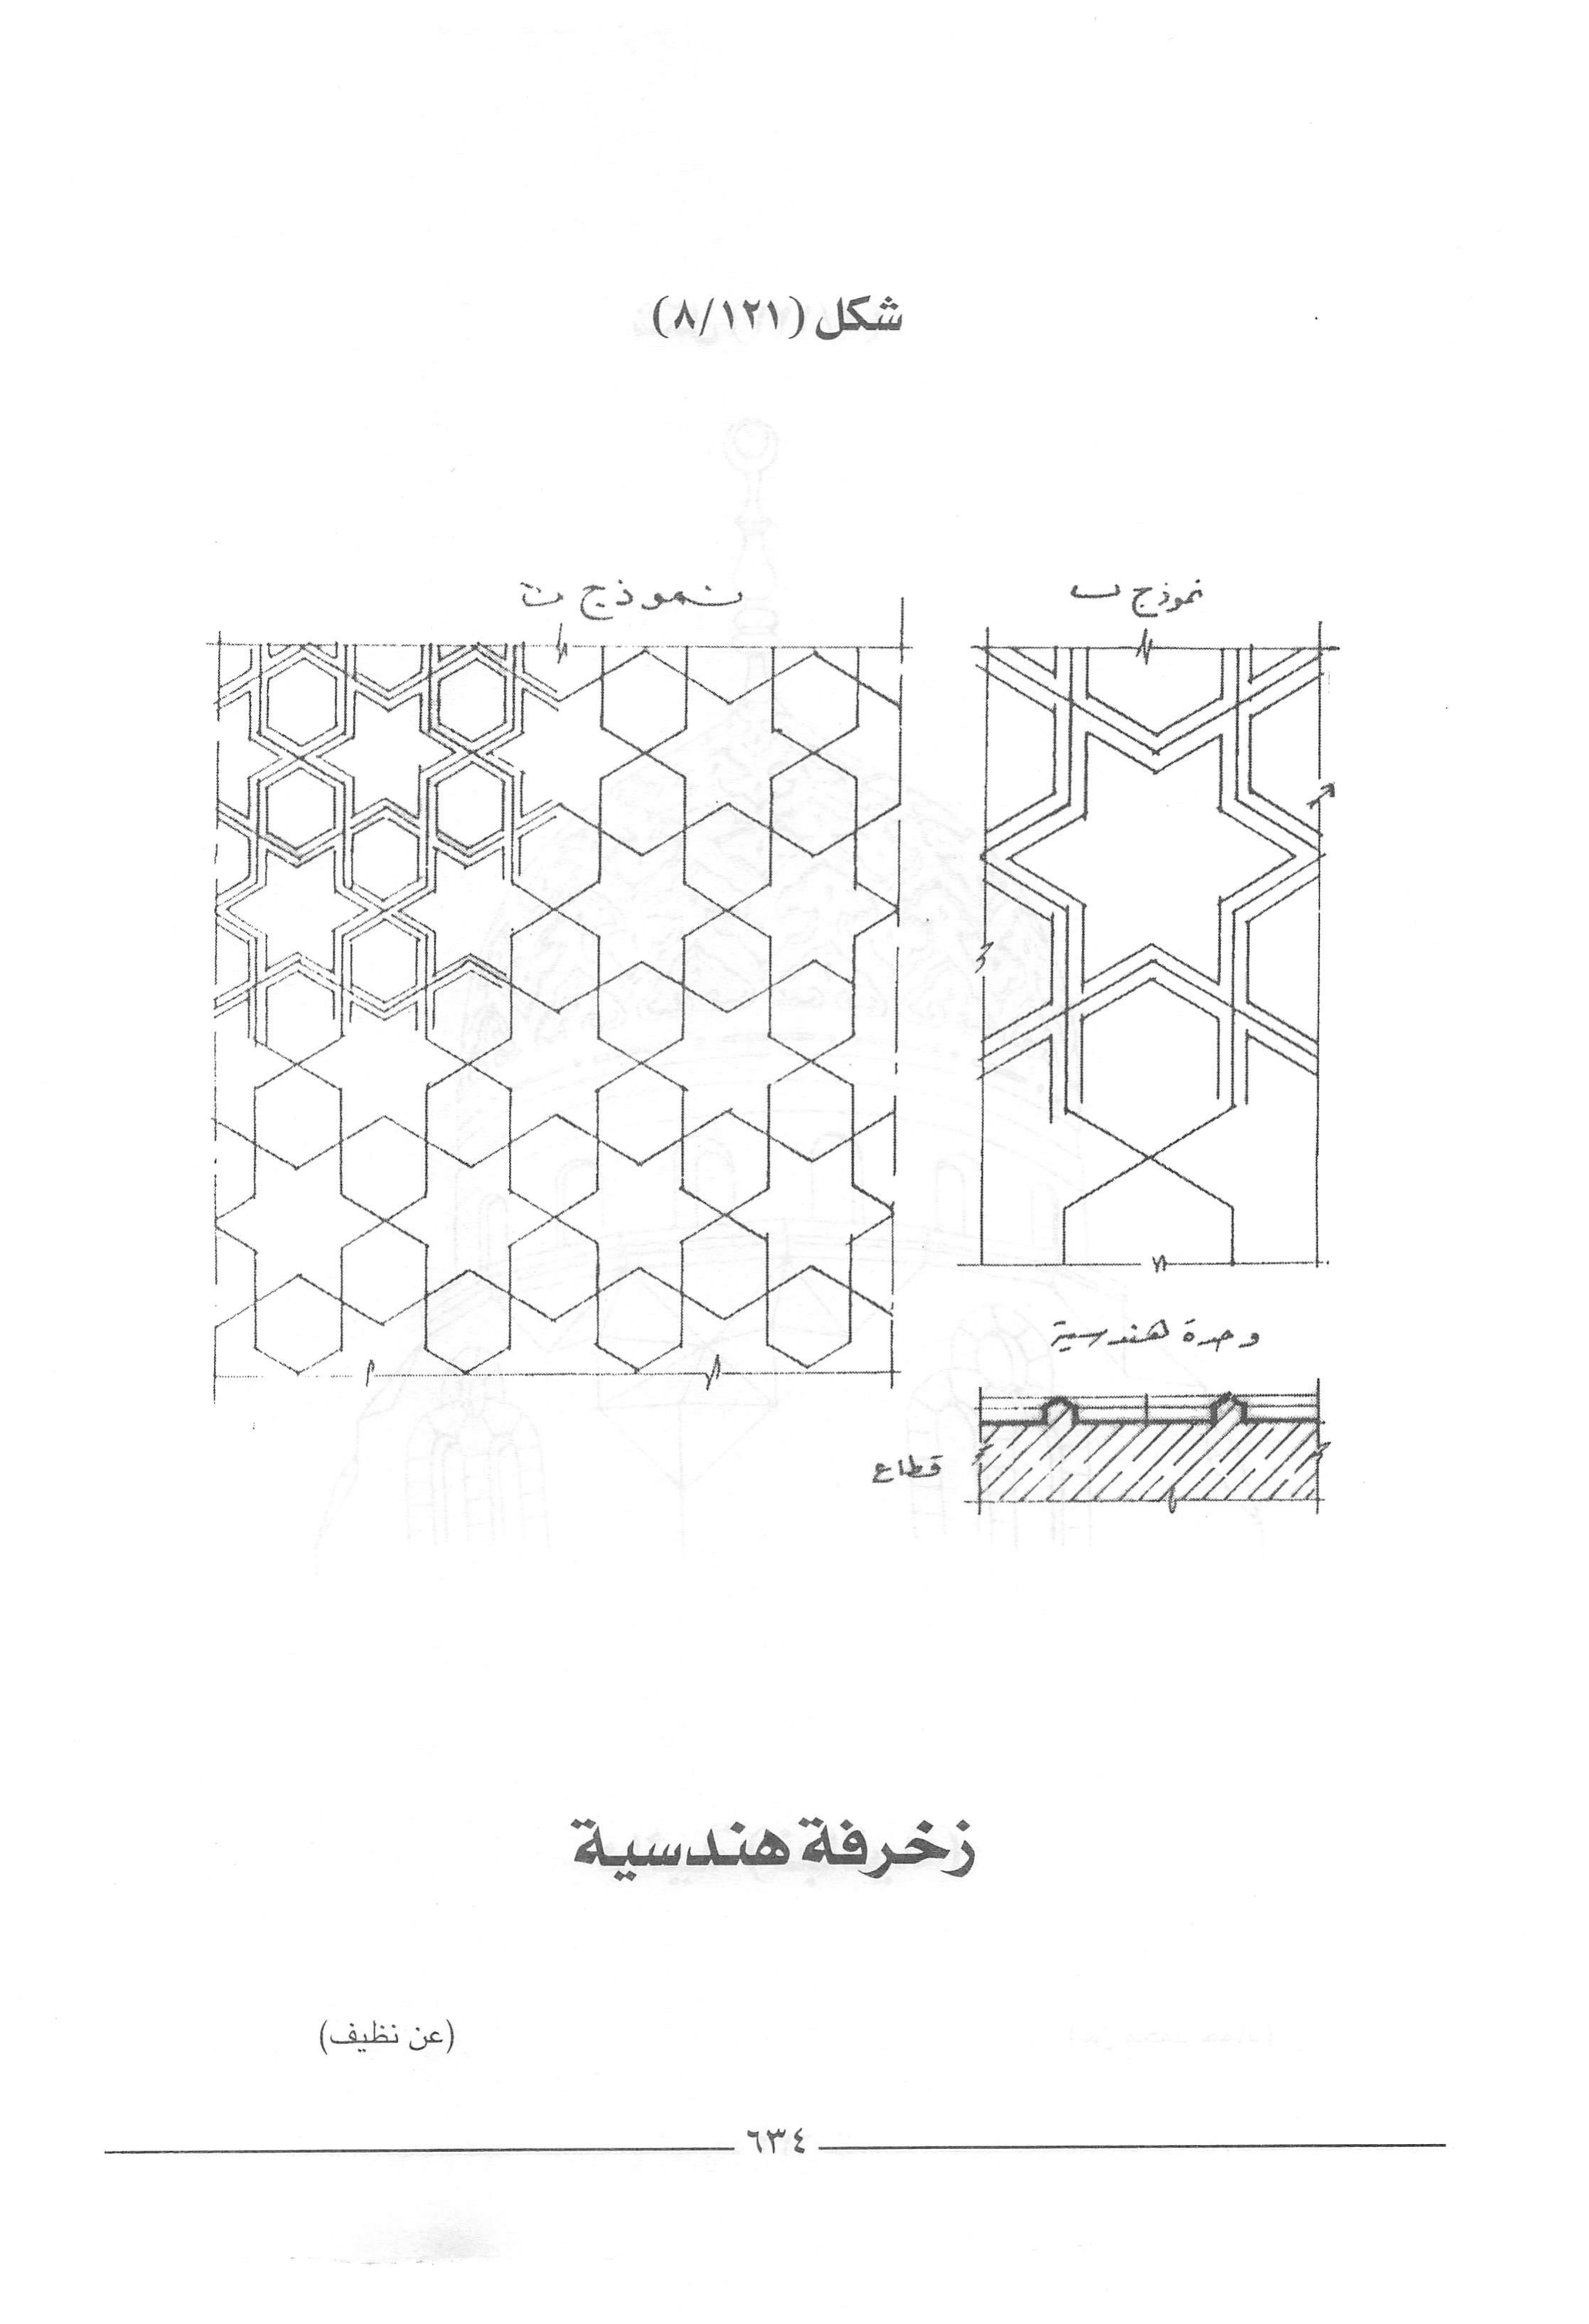 شكل (٨/١٢١)
نموذج ب
نموذج ت
وحدة هندسية
قطاع
زخرفة هندسية
(عن نظيف)
٦٣٤